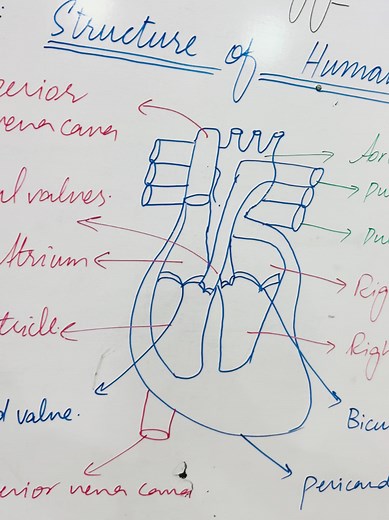 Structure of Human
erior
vena cava
al valves.
Atrium
tricle
d valve.
erior vena cava
Aor
Pu
Rig
Righ
Bicu
pericard